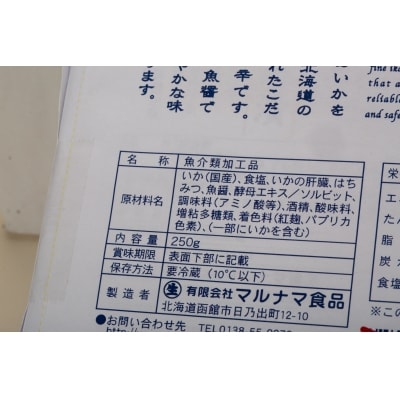 はいかを
北海道の
れたこだ
辛です。
魚醤で
やかな味
ます。
fine ika
that a
reliable
and safe
名　称 魚介類加工品
原材料名 いか(国産)、食塩、いかの肝臓、はち
みつ、魚醤、酵母エキス/ソルビット、
調味料(アミノ酸等)、酒精、酸味料、
増粘多糖類、着色料(紅麹、パプリカ
色素)、(一部にいかを含む)
内 容 量 250g
賞味期限 表面下部に記載
保存方法 要冷蔵(10℃以下)
製 造 者 生 有限会社マルナマ食品
北海道函館市日乃出町12-10
●お問い合わせ先 TEL0138-55-
http://
栄
エネ
たん
脂
炭
食塩
※この